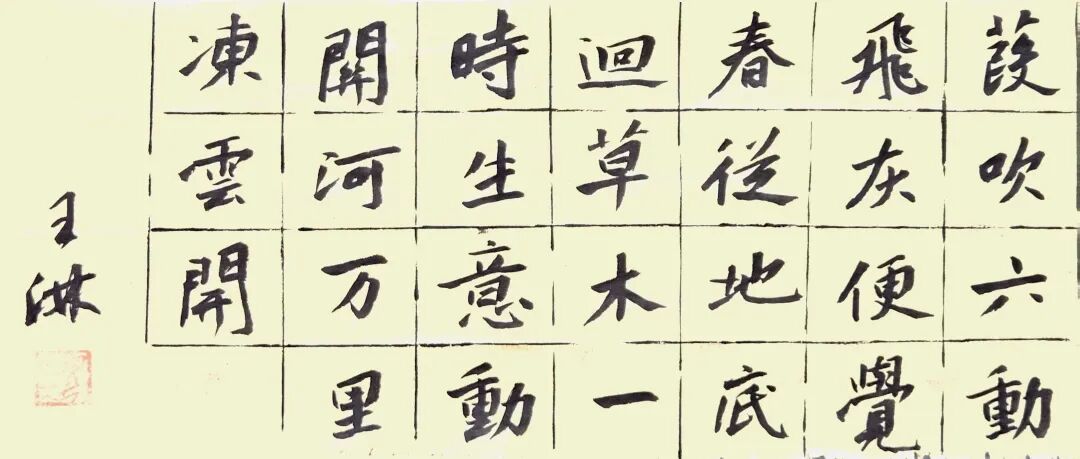 葭吹六動
飛灰便覺
春從地底
迴草木一
時生意動
関河万里
凍雲開
王淋